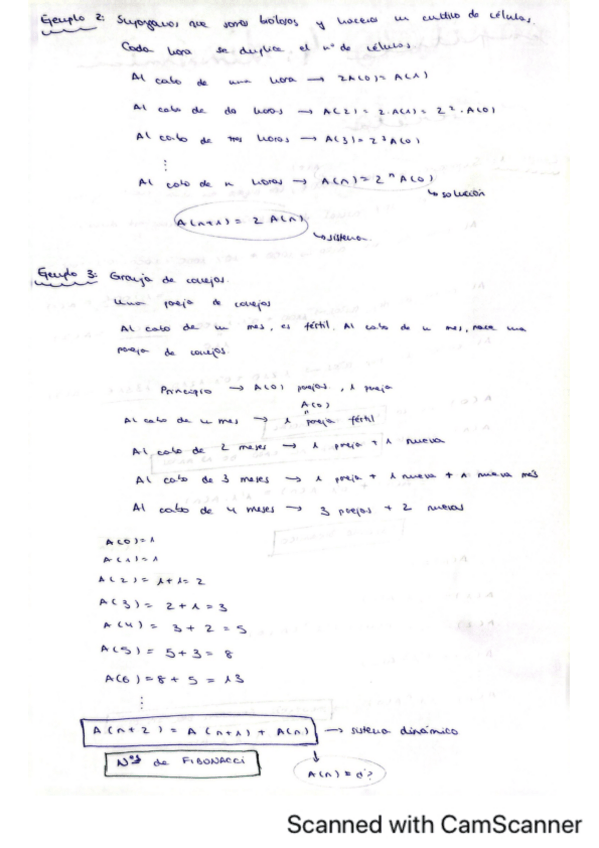 Ejemplo 2: Supongamos que somos biólogos y hacemos un cultivo de células.
Cada hora se duplica el nº de células.
Al cabo de una hora → 2A(0) = A(1)
Al cabo de dos horas → A(2) = 2·A(1) = 2²·A(0)
Al cabo de tres horas → A(3) = 2³A(0)
⋮
Al cabo de n horas → A(n) = 2ⁿA(0)
↳ solución
A(n+1) = 2 A(n)
↳ sistema
Ejemplo 3: Granja de conejos.
Una pareja de conejos
Al cabo de un mes, es fértil. Al cabo de un mes, nace una
pareja de conejos.
Principio → A(0) parejas, 1 pareja
A(0)
Al cabo de un mes → 1 pareja fértil
Al cabo de 2 meses → 1 pareja + 1 nueva
Al cabo de 3 meses → 1 pareja + 1 nueva + 1 nueva más
Al cabo de 4 meses → 3 parejas + 2 nuevas
A(0) = 1
A(1) = 1
A(2) = 1+1 = 2
A(3) = 2+1 = 3
A(4) = 3+2 = 5
A(5) = 5+3 = 8
A(6) = 8+5 = 13
⋮
A(n+2) = A(n+1) + A(n) → sistema dinámico
Nºs de FIBONACCI
A(n) = ¿?
Scanned with CamScanner